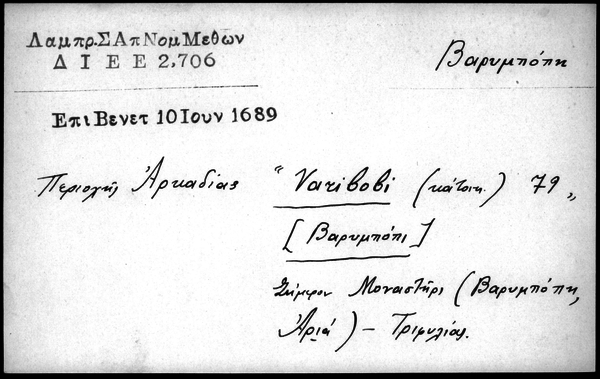 Λαμπρ.ΣΑπΝομΜεθών
ΔΙΕΕ 2,706
Βαρυμπόπη
ΕπιΒενετ 10 Ιουν 1689
Περιοχής Ἀρκαδίας "Varibobi (κάτοικ.) 79"
[Βαρυμπόπι]
Σήμερον Μοναστήρι (Βαρυμπόπη,
Ἀριά) - Τριφυλίας.